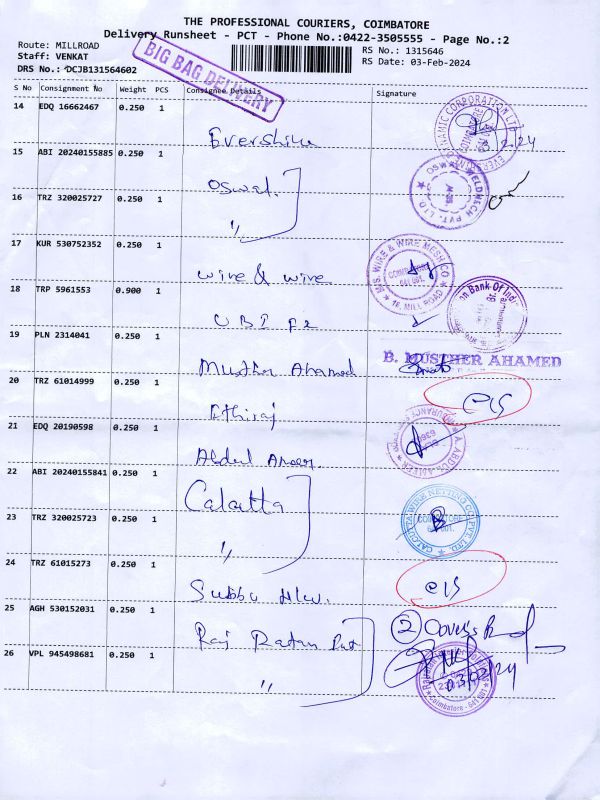 THE PROFESSIONAL COURIERS, COIMBATORE
Delivery Runsheet - PCT - Phone No.:0422-3505555 - Page No.:2
Route: MILLROAD
Staff: VENKAT
DRS No.: DCJB131564602
BIG BAG DELIVERY
RS No.: 1315646
RS Date: 03-Feb-2024
S No Consignment No Weight PCS Consignee Details Signature
14 EDQ 16662467 0.250 1
Evershine
15 ABI 20240155885 0.250 1
Oswal
16 TRZ 320025727 0.250 1
"
OSWAL WELDMECH PVT. LTD
17 KUR 530752352 0.250 1
wire & wire
WIRE & WIRE MESH CO
MILL ROAD
18 TRP 5961553 0.900 1
UBI
Bank Of India
19 PLN 2314041 0.250 1
Musther Ahamed
B. MUSTHER AHAMED
20 TRZ 61014999 0.250 1
Ethiraj
c/s
21 EDQ 20190598 0.250 1
Abdul
22 ABI 20240155841 0.250 1
Calcutta
23 TRZ 320025723 0.250 1
"
CALCUTTA WIRE NETTING CO. PVT. LTD
24 TRZ 61015273 0.250 1
Subbu
c/s
25 AGH 530152031 0.250 1
Raj Ratan
2 Covers
26 VPL 945498681 0.250 1
"
03/02/24